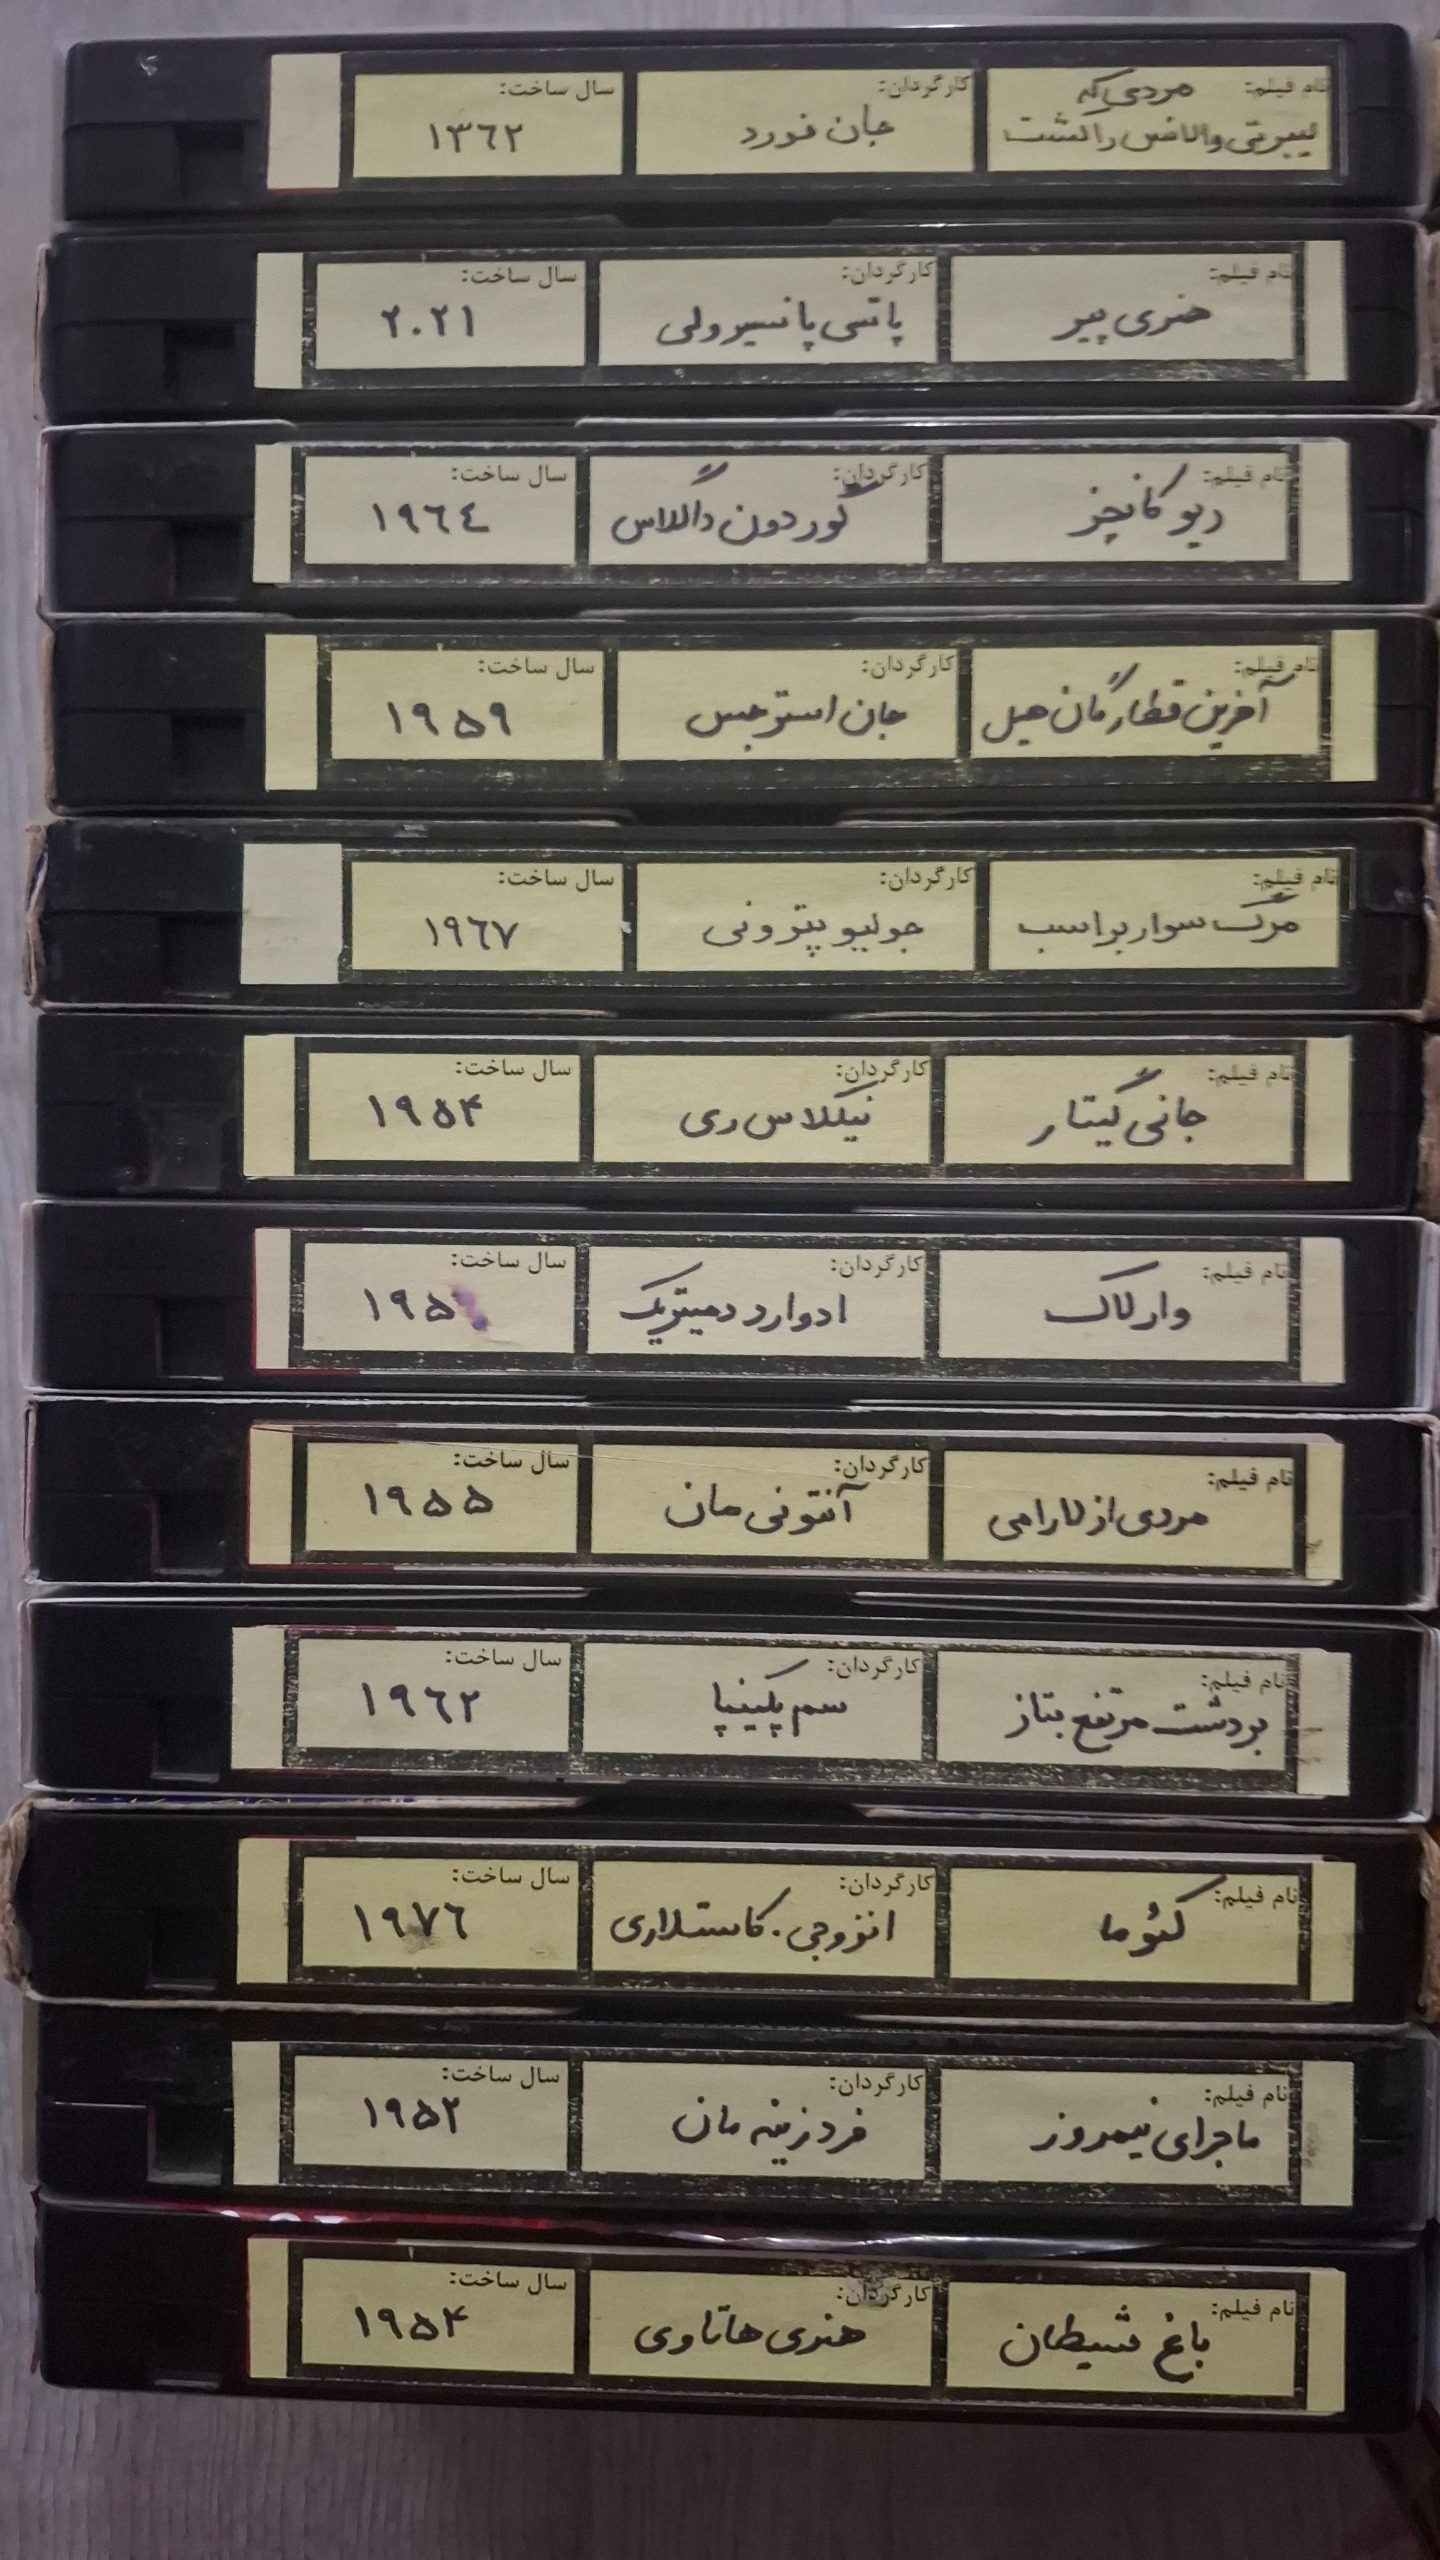 نام فیلم: مردی که
لیبرتی والانس را کشت
کارگردان:
جان فورد
سال ساخت:
۱۳۶۲
نام فیلم:
هنری پیر
کارگردان:
پاتسی پانسیرولی
سال ساخت:
۲۰۲۱
نام فیلم:
ریو کانچز
کارگردان:
گوردون داگلاس
سال ساخت:
۱۹۶۴
نام فیلم:
آخرین قطار گان هیل
کارگردان:
جان استرجس
سال ساخت:
۱۹۵۹
نام فیلم:
مرگ سوار بر اسب
کارگردان:
جولیو پترونی
سال ساخت:
۱۹۶۷
نام فیلم:
جانی گیتار
کارگردان:
نیکلاس ری
سال ساخت:
۱۹۵۴
نام فیلم:
وارلاک
کارگردان:
ادوارد دمیتریک
سال ساخت:
نام فیلم:
مردی از لارامی
کارگردان:
آنتونی مان
سال ساخت:
۱۹۵۵
نام فیلم:
بر دشت مرتفع بتاز
کارگردان:
سم پکینپا
سال ساخت:
۱۹۶۲
نام فیلم:
کئوما
کارگردان:
انزو جی. کاستلاری
سال ساخت:
۱۹۷۶
نام فیلم:
ماجرای نیمروز
کارگردان:
فرد زینه مان
سال ساخت:
۱۹۵۲
نام فیلم:
باغ شیطان
کارگردان:
هنری هاتاوی
سال ساخت:
۱۹۵۴